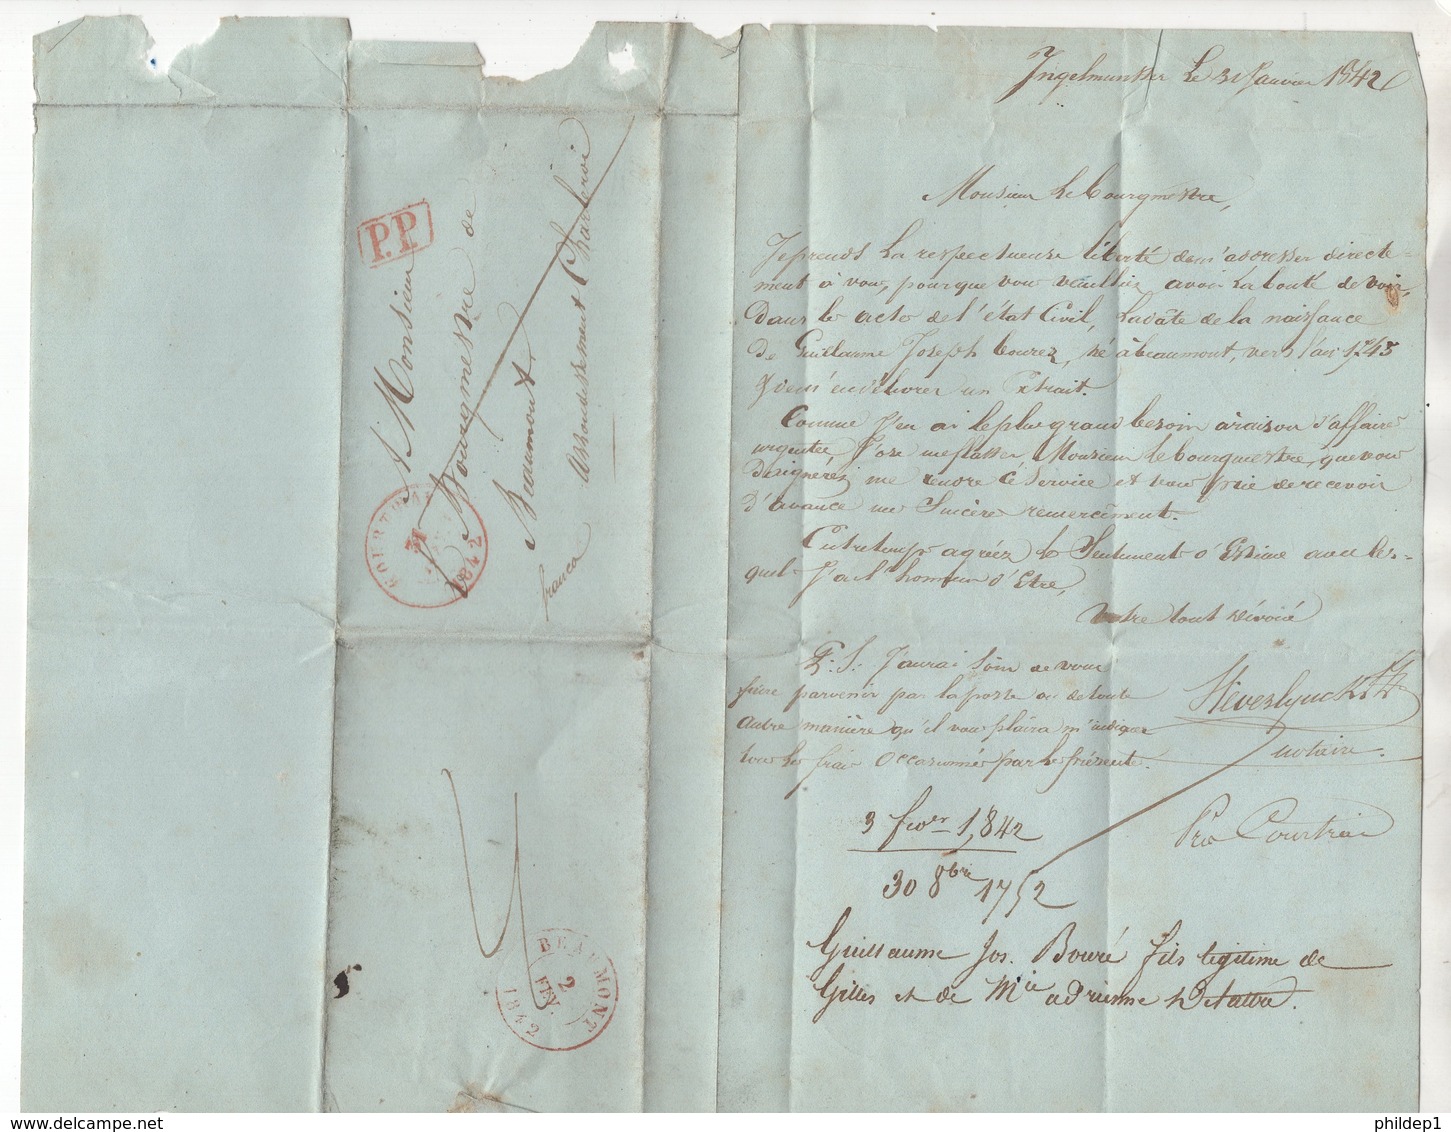 Ingelmunster Le 31 Janvier 1842
Monsieur Le bourgmestre,
Je prends La respectueuse liberté de m'addresser directe-
ment à vous, pourque vous veuilliez avoir La bonté de voir,
Dans les actes de l'état Civil, La date de la naissance
De Guillaume Joseph bourez, né à beaumont, vers l'an 1745
& de m'en délivrer un Extrait.
Comme J'en ai le plus grand besoin à raison d'affaire
urgentes J'ose me flatter Monsieur le bourgmestre, que vous
Daignérez me rendre Cé Service et vous prie de recevoir
D'avance mes Sincères remerciment.
Entretemps agréez les Sentiments d'Estime avec les-
quels J'ai l'honneur d'Etre,
Votre tout Dévoué
P. S. J'aurai Soin de vous
faire parvenir par la poste ou de toute
autre manière qu'il vous plaira m'indiquer
tous les frais Occasionnés par le présente.
notaire.
Pro Courtrai
3 fevr 1,842
30 8bre 1752
Guillaume Jos. Bouré fils légitime de
Gilles et de Mie adrienne Delattre.
P.P.
A Monsieur
Le Bourgmestre de
Beaumont,
Arrondissement Charleroi
franco
COURTRAI
31
1842
BEAUMONT
2
FEV.
1842
phildep1
delcampe.net